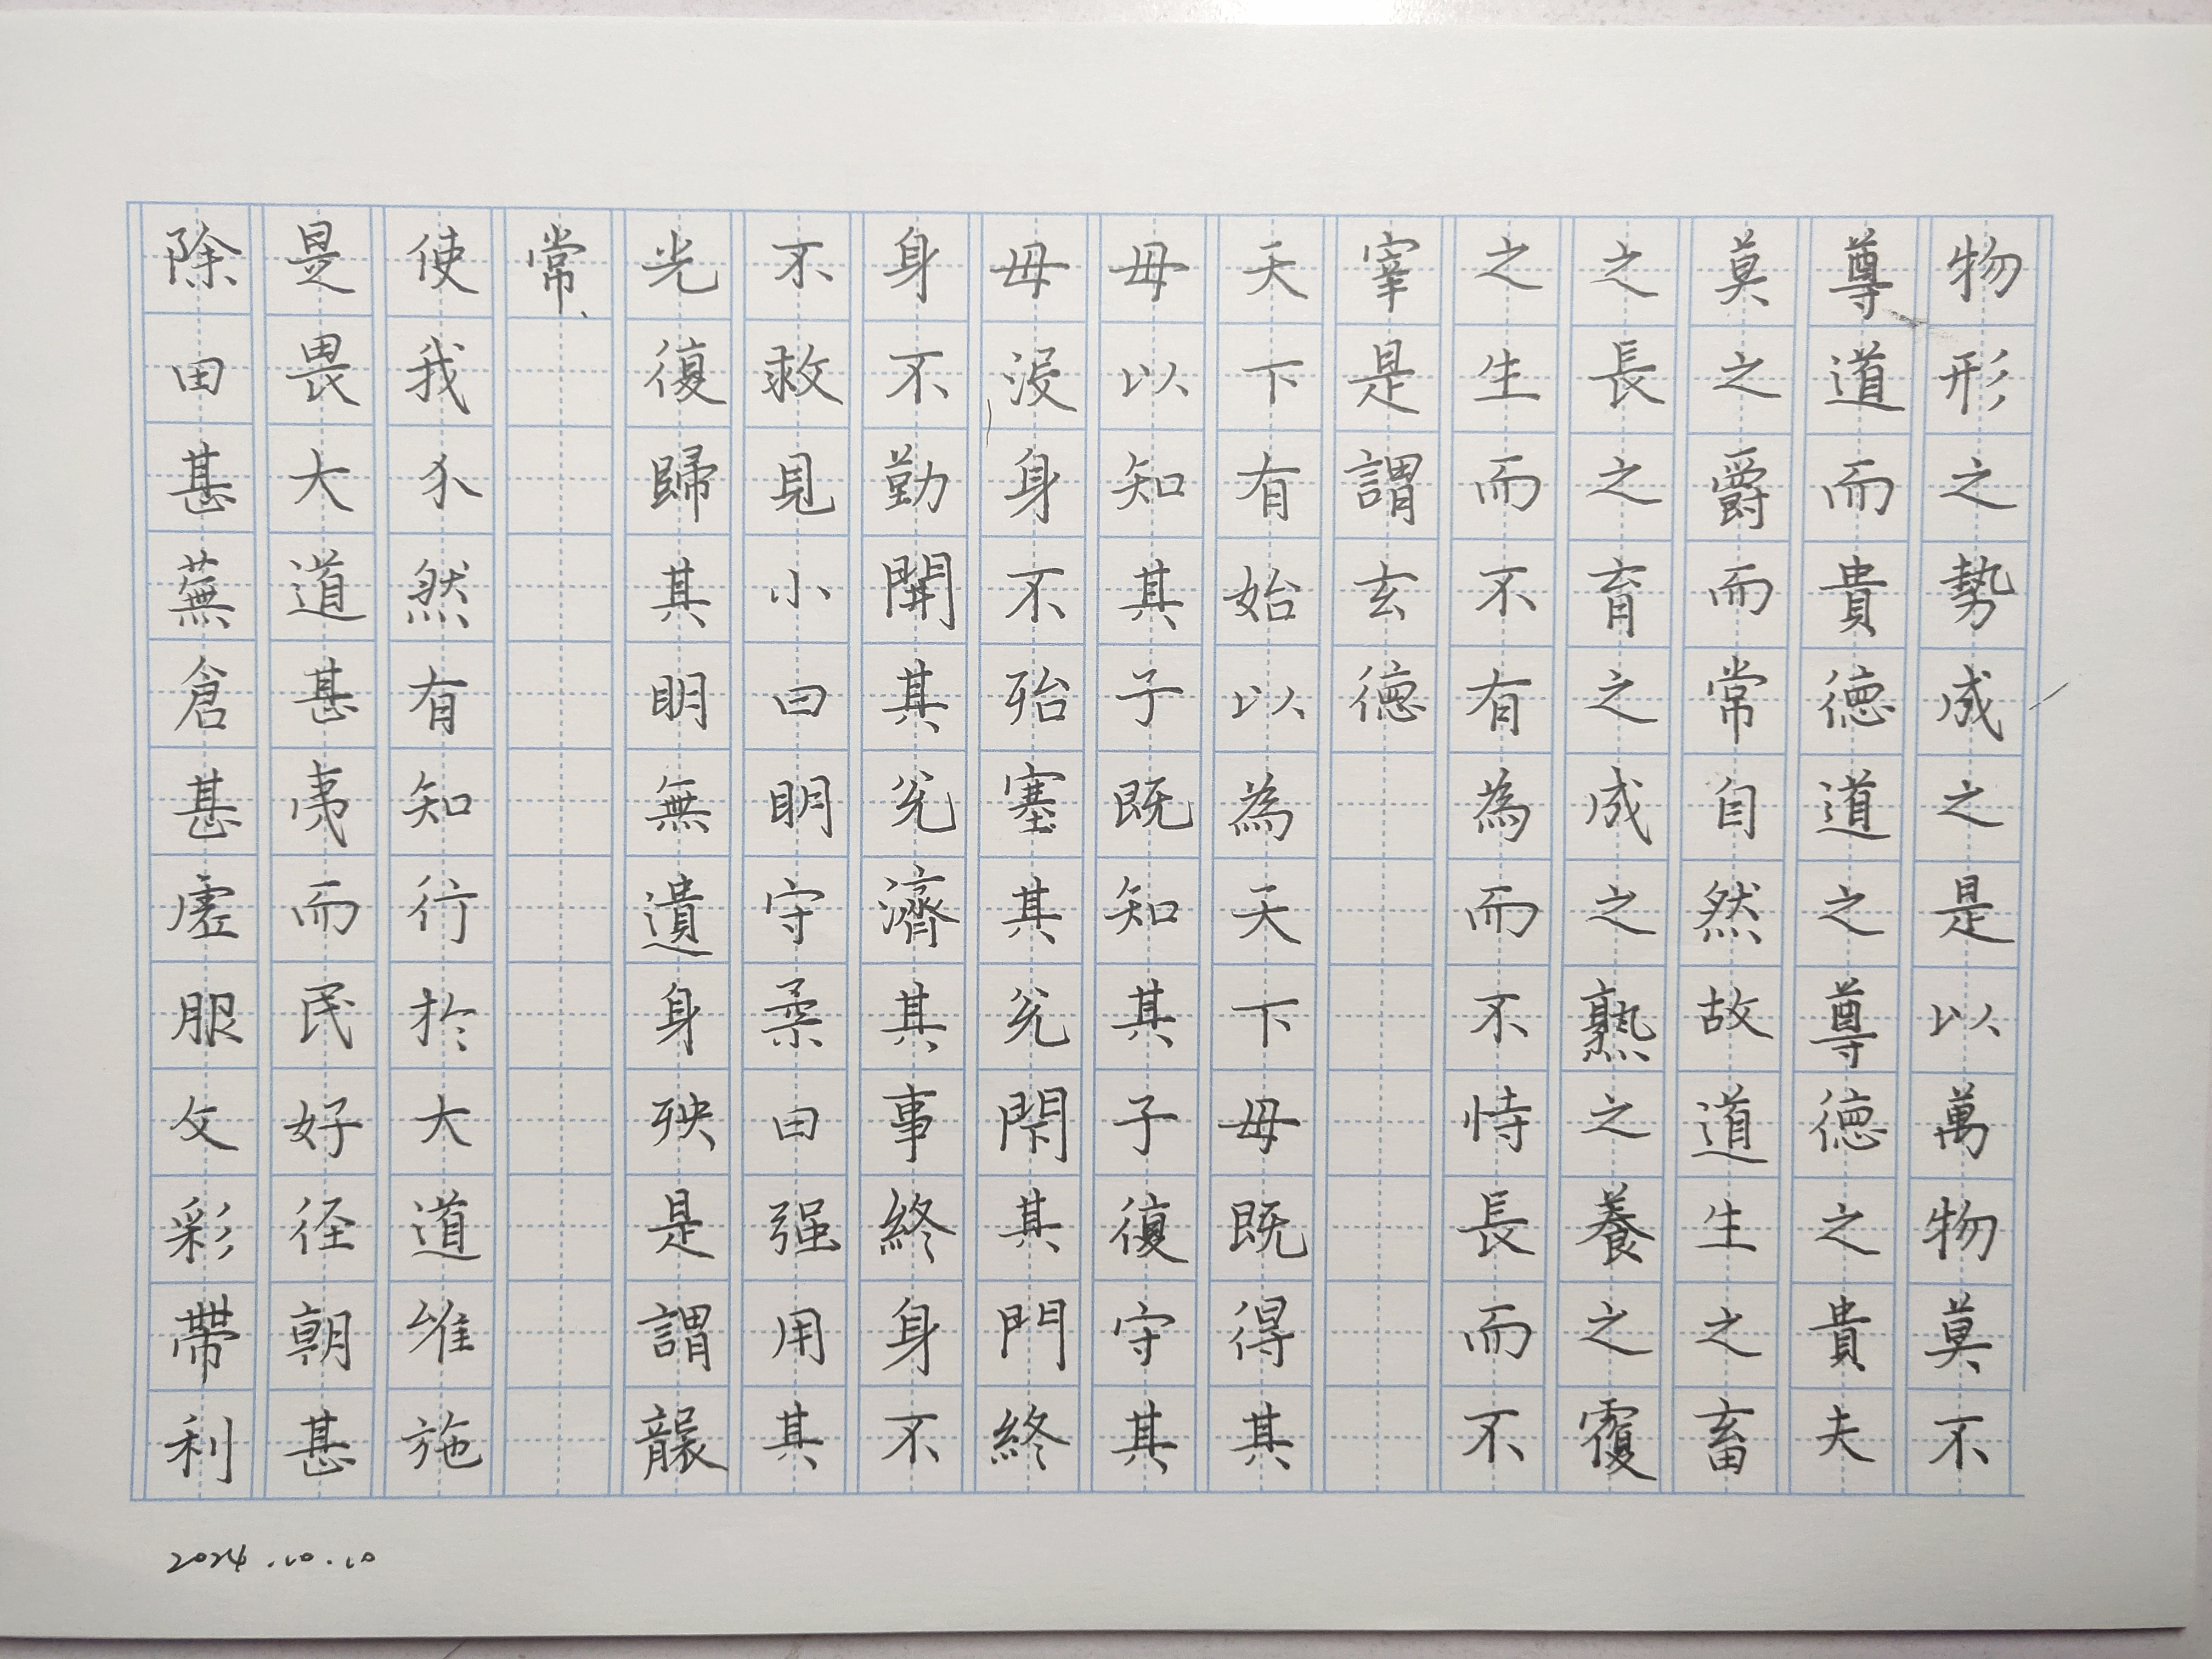 物形之勢成之是以萬物莫不
尊道而貴德道之尊德之貴夫
莫之爵而常自然故道生之畜
之長之育之成之熟之養之覆
之生而不有為而不恃長而不
宰是謂玄德
天下有始以為天下母既得其
母以知其子既知其子復守其
母没身不殆塞其兌閇其門終
身不勤開其兌濟其事終身不
不救見小曰明守柔曰强用其
光復歸其明無遺身殃是謂襲
常
使我介然有知行於大道唯施
是畏大道甚夷而民好徑朝甚
除田甚蕪倉甚虛服文彩帶利
2024.10.10